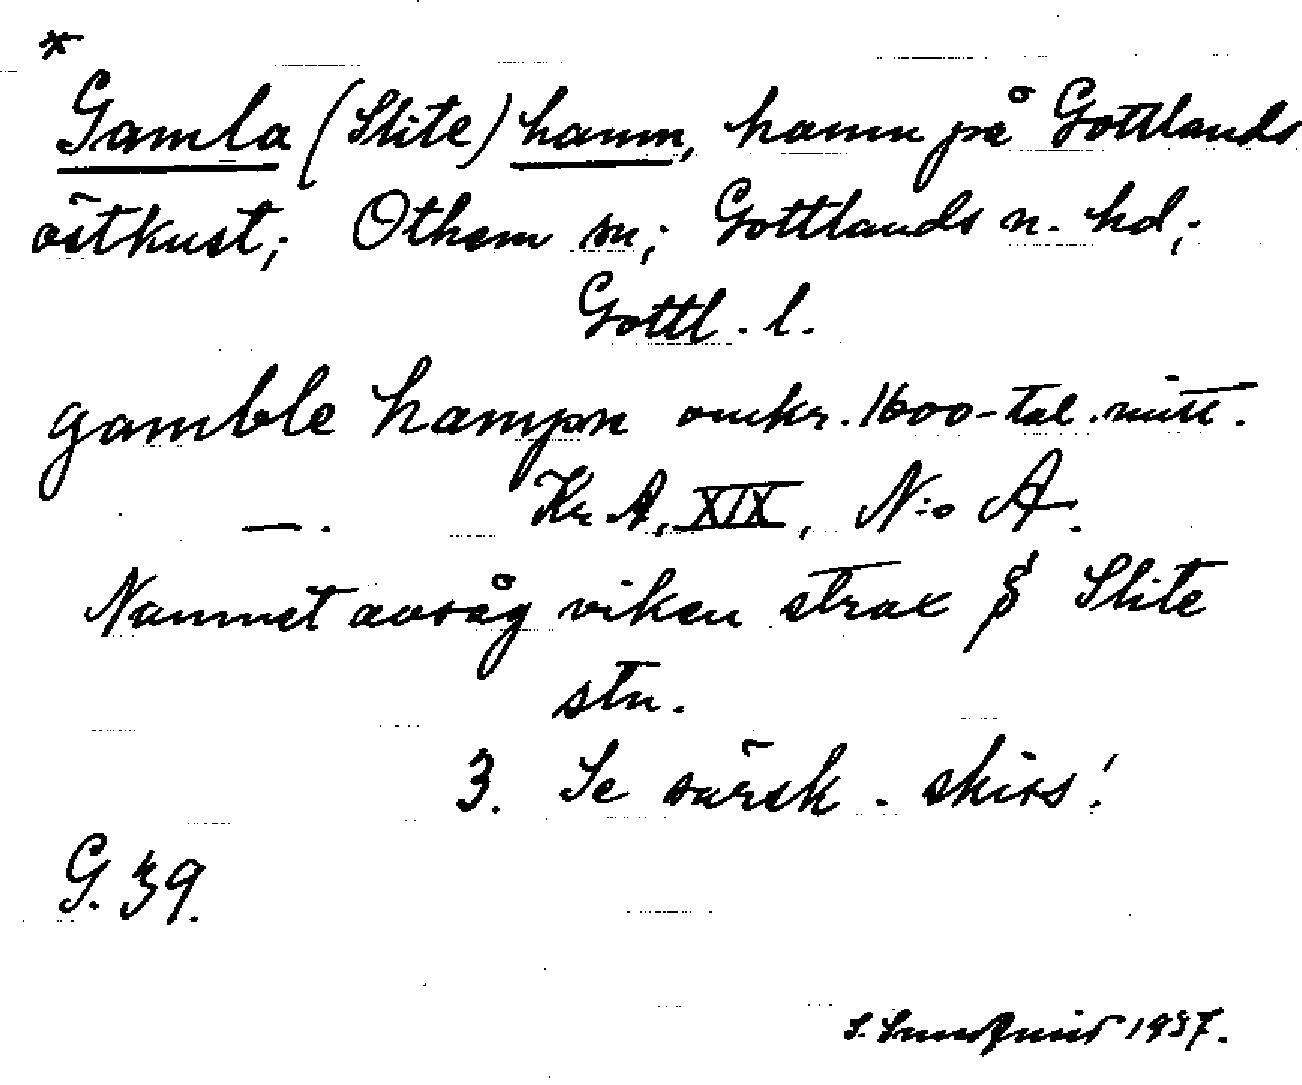 *
Gamla (Slite) hamn, hamn på Gottlands
östkust; Othem sn; Gottlands n. hd;
Gottl. l.
gamble hampn omkr. 1600-tal. mitt.
— . Kr A, XIX, N:o A.
Namnet avsåg viken strax S Slite
stn.
3. Se särsk. skiss!
G. 39.
S. Sundquist 1937.